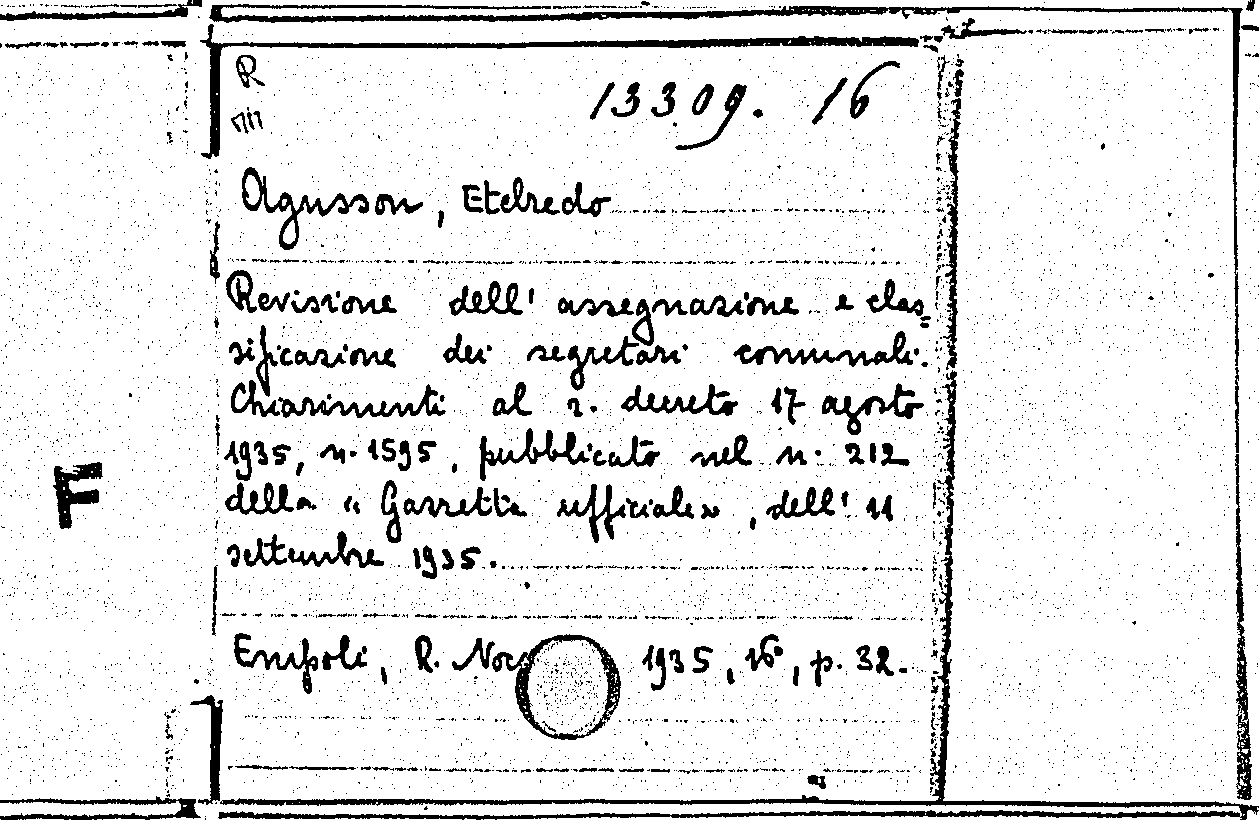 R
13309. 16
Agusson, Etelredo
Revisione dell' assegnazione e clas=
sificazione dei segretari comunali.
Chiarimenti al r. decreto 17 agosto
1935, n. 1595, pubblicato nel n. 212
della "Gazzetta ufficiale", dell' 11
settembre 1935.
F
Empoli, R. 1935, 16°, p. 32.